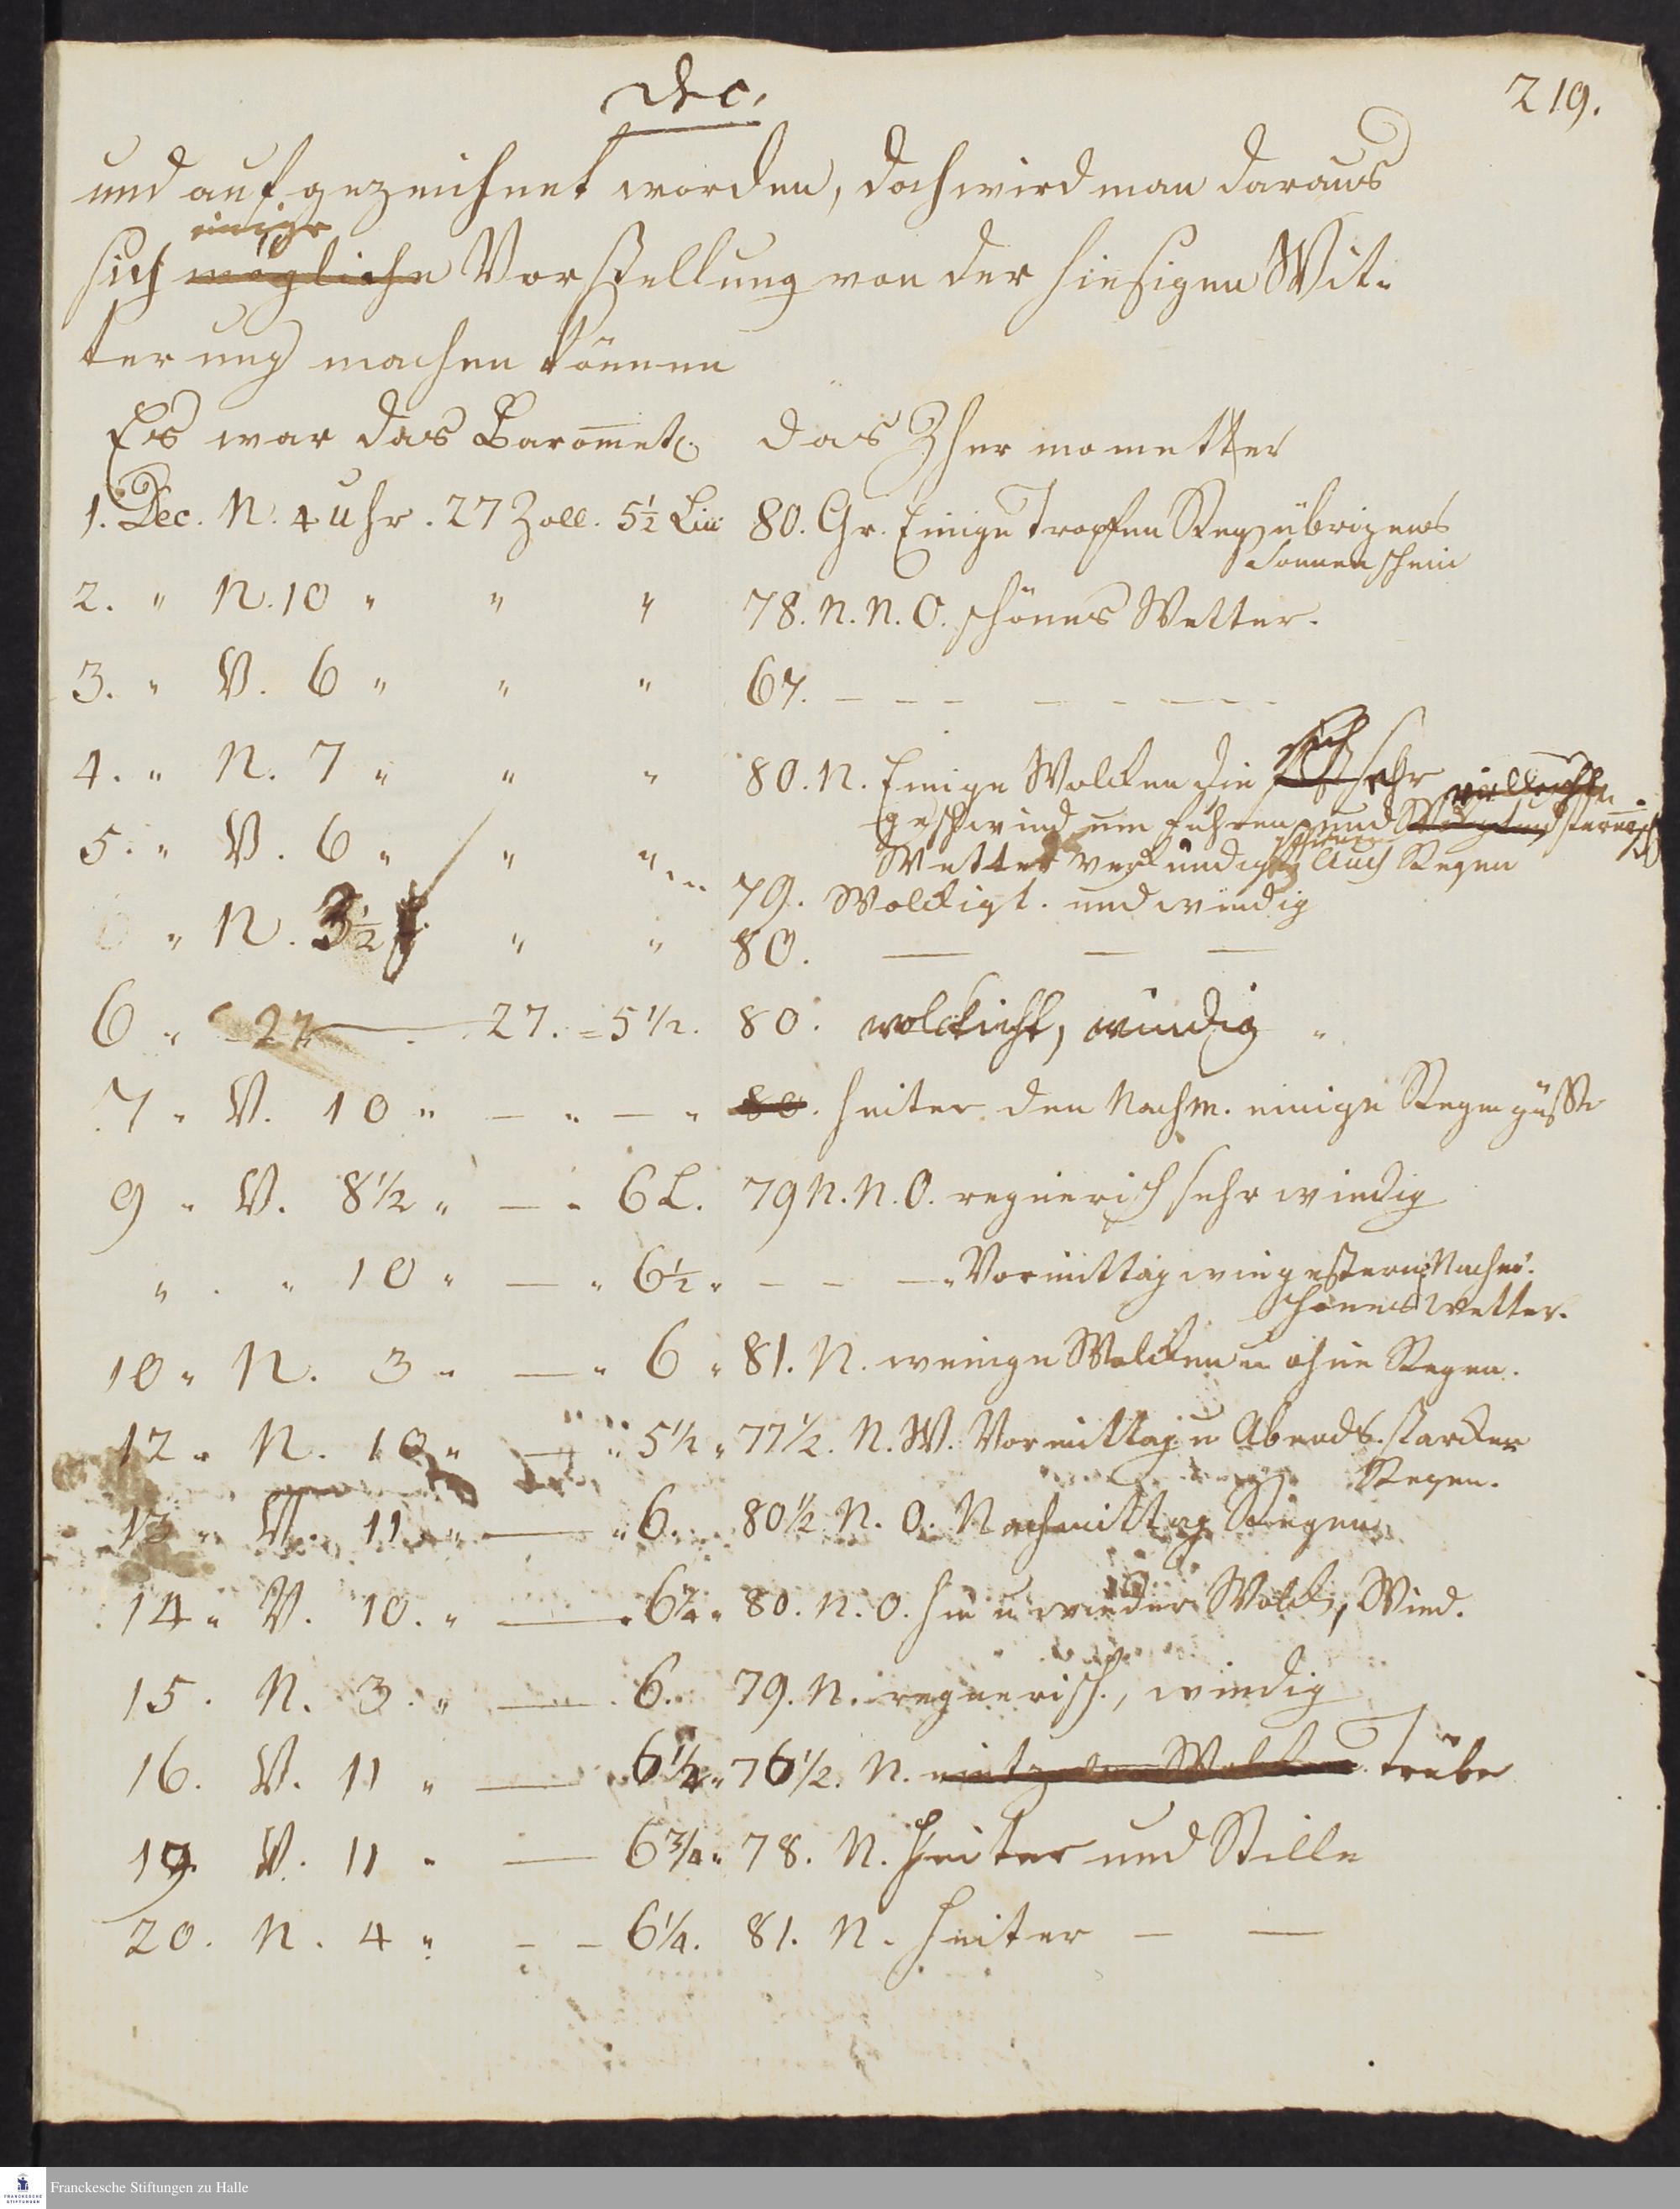 Dec.
219.
und aufgezeichnet worden, doch wird man daraus
einige
sich mögliche Vorstellung von der hiesigen Wit-
terung machen können
Es war das Baromet. das Thermometter
1. Dec. N. 4 Uhr. 27 Zoll. 5½ Lin 80. Gr. Einige Tropfen Reg. übrigens
Sonnenschein
2. " N. 10 " " " 78. N. N. O. schönes Wetter.
3. " V. 6 " " " 67. — — — — — —
4. " N. 7 " " " 80. N. Einige Wolcken die sich sehr
geschwind um fuhren und
5. " V. 6 " " "
Wetter verkündig auch Regen
79. Wolckigt. und windig
" N. 3½ " " 80. — — —
6 " 27. = 5 1/2. 80. wolckicht, windig "
7 " V. 10 " — " — " 80. heiter den Nachm. einige Regengüsse
9 " V. 8 1/2 " — " 6 L. 79 N. N. O. regnerisch sehr windig
" . " 10 " — " 6½ " — — — " Vormittag wie gestern Nachm.
schönes Wetter.
10 " N. 3 " — " 6 " 81. N. wenige Wolcken u ohne Regen.
12 " N. 10 " — " 5 1/2 " 77 1/2. N. W. Vormittag u Abends starcker
Regen.
13 " V. 11 " — " 6. 80 1/2 N. O. Nachmittag Regen
14 " V. 10. " — " 80. N. O. hie u wieder Wolck, Wind.
15. N. 3. " — 6. 79. N. regnerisch., windig
16. V. 11 " — 76 1/2. N. Trübe
19. V. 11 " — 6 3/4 " 78. N. Heiter und Stille
20. N. 4 " — — 6 1/4. 81. N. Heiter — —
FRANCKESCHE
STIFTUNGEN
Franckesche Stiftungen zu Halle